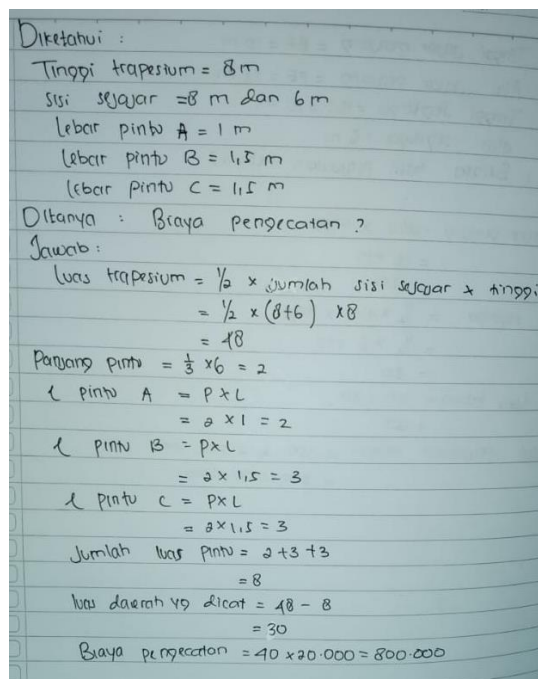 Diketahui :
Tinggi trapesium = 8 m
sisi sejajar = 8 m dan 6 m
Lebar pintu A = 1 m
Lebar pintu B = 1,5 m
Lebar pintu C = 1,5 m
Ditanya : Biaya pengecatan ?
Jawab :
luas trapesium = 1/2 x jumlah sisi sejajar x tinggi
= 1/2 x (8+6) x8
= 48
Panjang pintu = 1/3 x6 = 2
L pintu A = P x L
= 2 x 1 = 2
L pintu B = P x L
= 2 x 1,5 = 3
L pintu C = P x L
= 2 x 1,5 = 3
Jumlah luas pintu = 2+3+3
= 8
luas daerah yg dicat = 48 - 8
= 30
Biaya pengecatan = 40 x 20.000 = 800.000